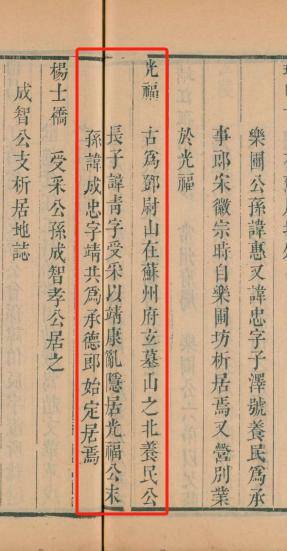 樂圃公孫諱惠又諱忠字子澤號養民爲承
事郎宋徽宗時自樂圃坊析居焉又營別業
於光福
光福　古爲鄧尉山在蘇州府玄墓山之北養民公
長子諱靑字受采以靖康亂隱居光福公未
孫諱成忠字靖共爲承德郎始定居焉
楊士橋　受采公孫成智孝公居之
成智公支析居地誌